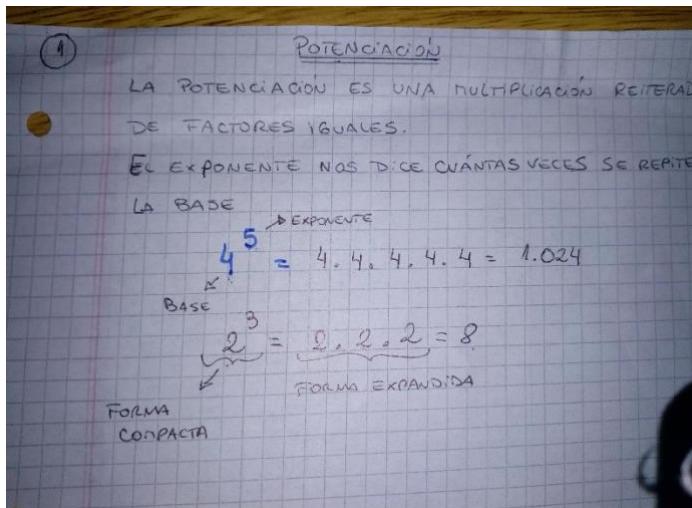 1
POTENCIACIÓN
LA POTENCIACIÓN ES UNA MULTIPLICACIÓN REITERAD
DE FACTORES IGUALES.
EL EXPONENTE NOS DICE CUÁNTAS VECES SE REPITE
LA BASE
EXPONENTE
4⁵ = 4.4.4.4.4 = 1.024
BASE
2³ = 2.2.2 = 8
FORMA EXPANDIDA
FORMA
COMPACTA